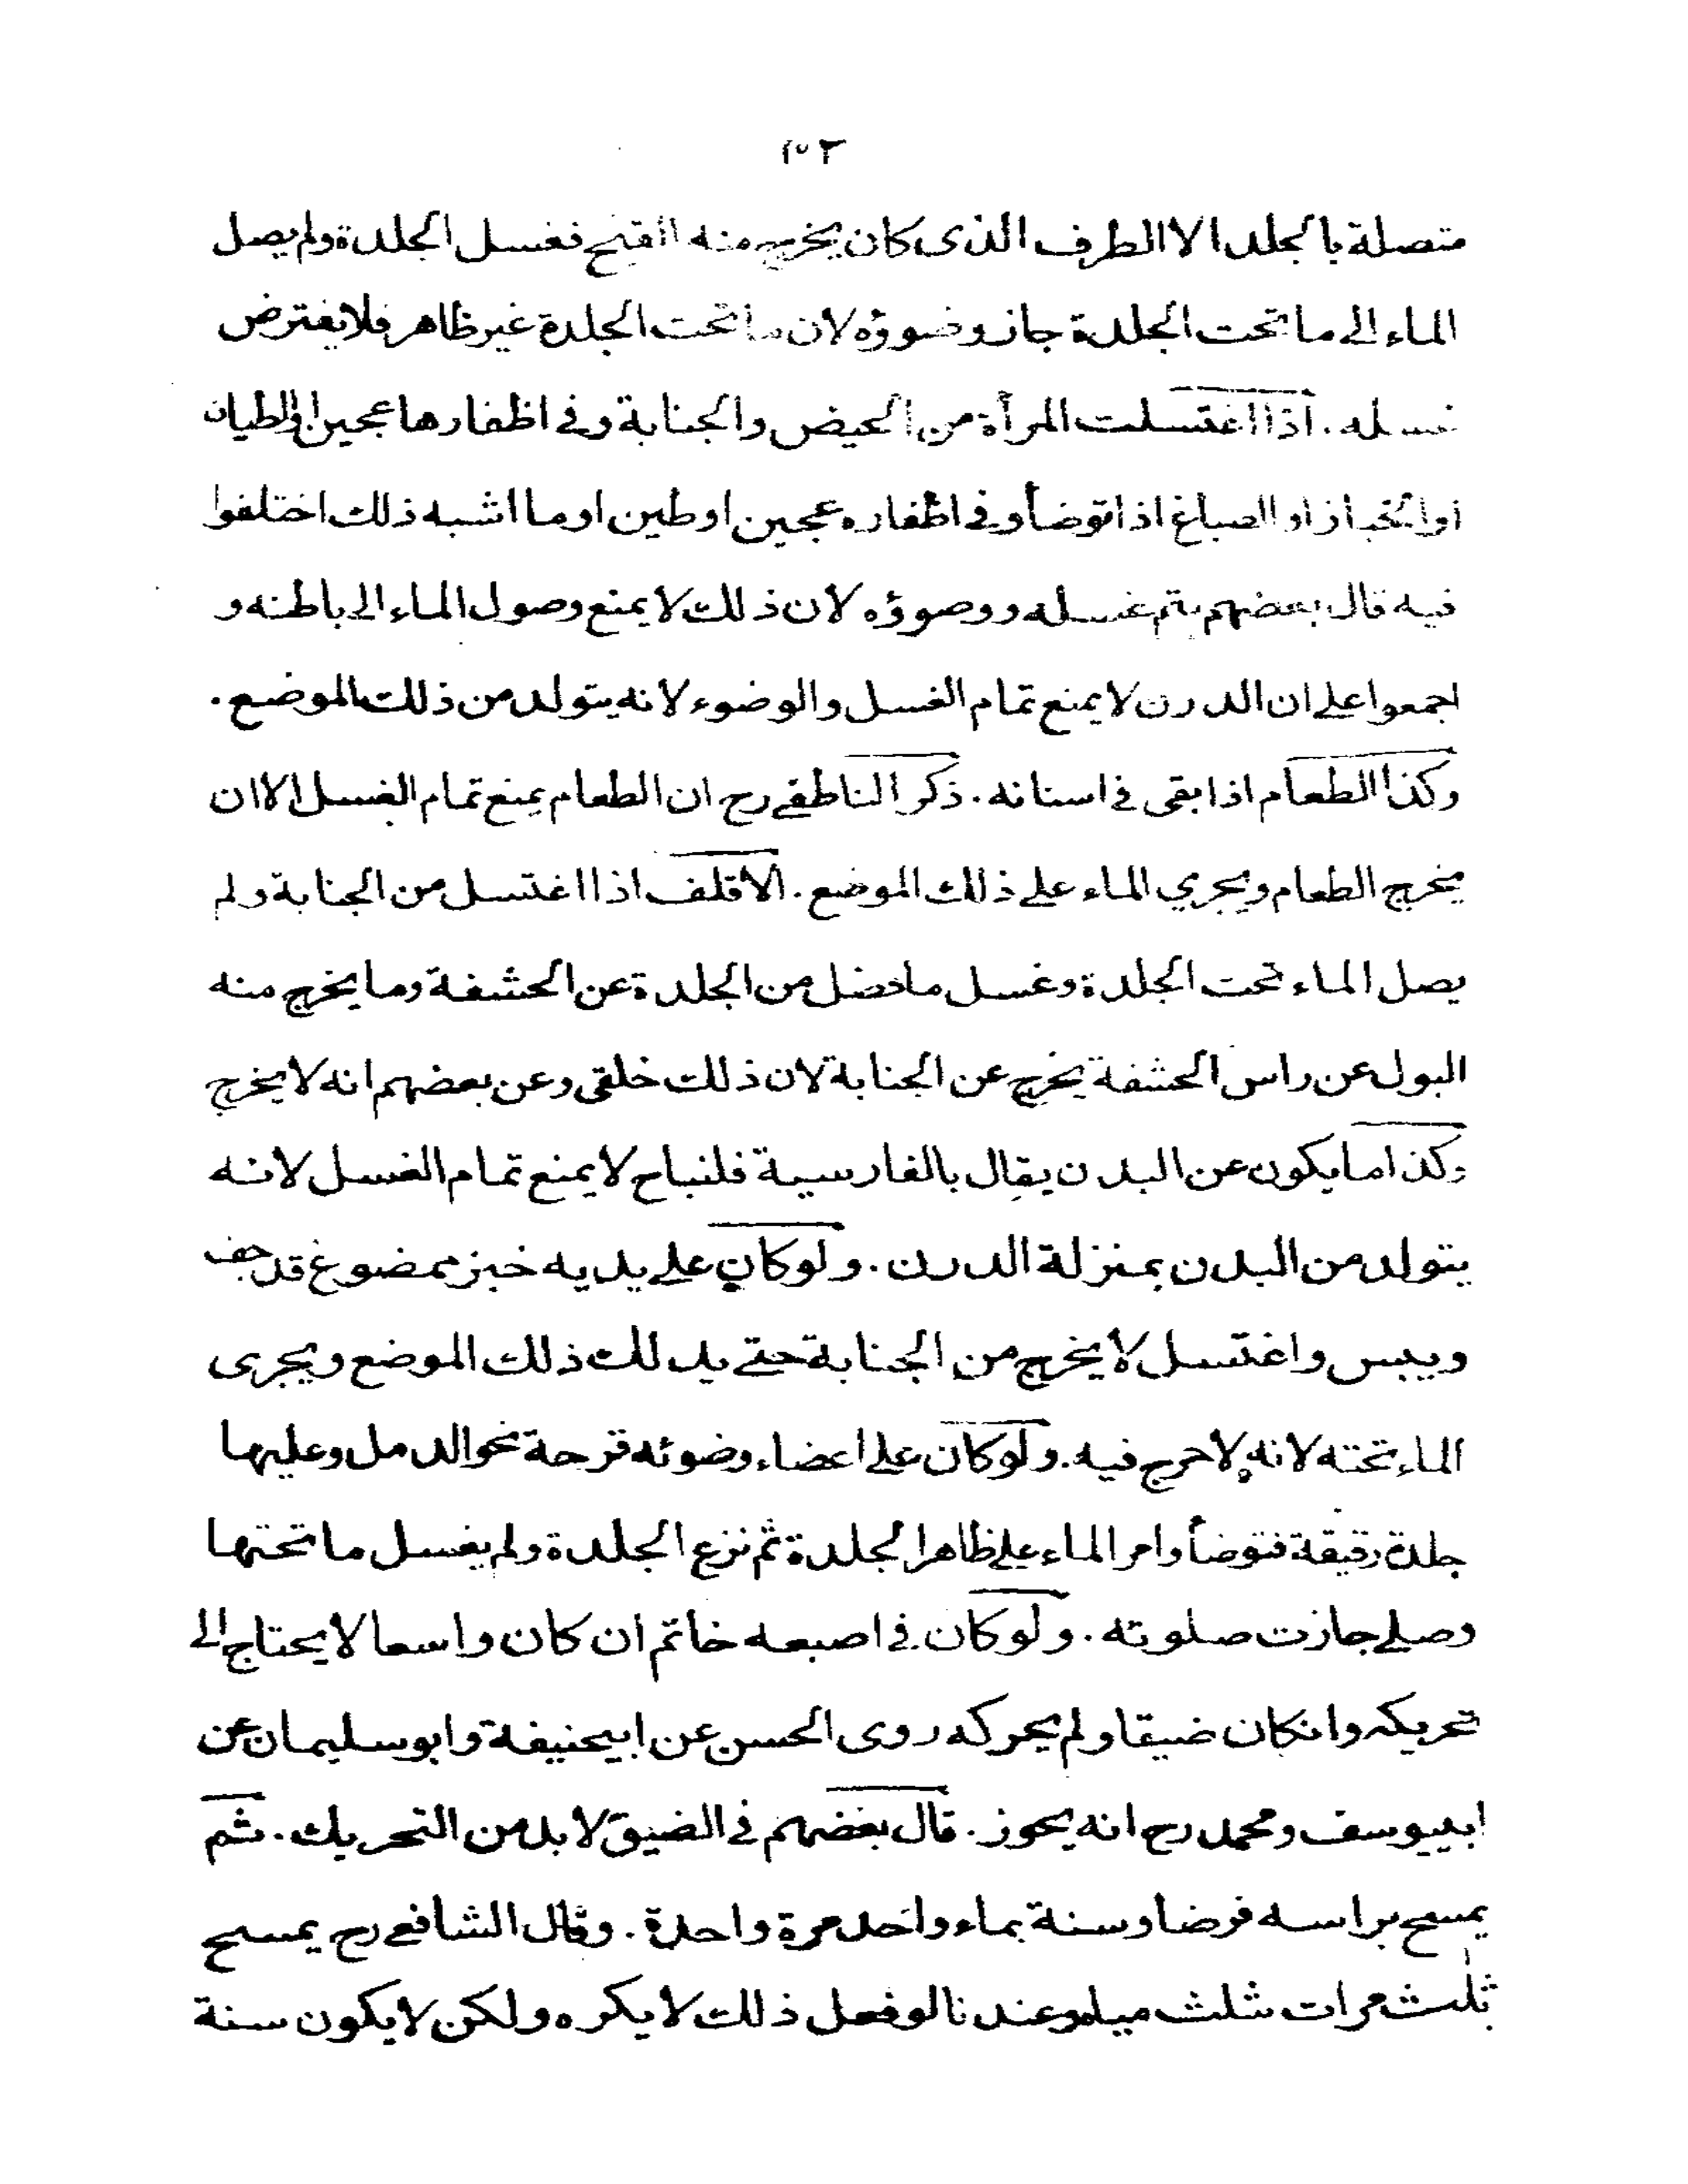 متصلة بالجلد الا الطرف الذى كان يخرج منه القيح فغسل الجلدة ولم يصل
الماء الى ما تحت الجلدة جاز وضوؤه لان ما تحت الجلدة غير ظاهر فلا يفترض
غسله . اذا اغتسلت المرأة من الحيض والجنابة وفى اظفارها عجين او الطيان
او الخباز او الصباغ اذا توضأ وفى اظفاره عجين او طين او ما اشبه ذلك اختلفوا
فيه قال بعضهم يتم غسله ووضوؤه لان ذلك لا يمنع وصول الماء الى باطنه و
اجمعوا على ان الدرن لا يمنع تمام الغسل والوضوء لانه يتولد من ذلك الموضع .
وكذا الطعام اذا بقى فى اسنانه . ذكر الناطفى رح ان الطعام يمنع تمام الغسل الا ان
يخرج الطعام ويجري الماء على ذلك الموضع . الاقلف اذا اغتسل من الجنابة ولم
يصل الماء تحت الجلدة وغسل ما فضل من الجلدة عن الحشفة وما يخرج منه
البول عن راس الحشفة يخرج عن الجنابة لان ذلك خلقى وعن بعضهم انه لا يخرج
وكذا ما يكون عن البدن يقال بالفارسية لا يمنع تمام الغسل لانه
يتولد من البدن بمنزلة الدرن . ولو كان على يديه خبز ممضوغ قد جف
ويبس واغتسل لا يخرج من الجنابة حتى يدلك ذلك الموضع ويجرى
الماء تحته لانه لا حرج فيه . ولو كان على اعضاء وضوئه قرحة نحو الدمل وعليها
جلدة رقيقة فتوضأ وامر الماء على ظاهر الجلدة ثم نزع الجلدة ولم يغسل ما تحتها
وصلى جازت صلوته . ولو كان فى اصبعه خاتم ان كان واسعا لا يحتاج الى
تحريكه وانكان ضيقا ولم يحركه روى الحسن عن ابيحنيفة وابو سليمان عن
ابييوسف ومحمد رح انه يجوز . قال بعضهم فى الضيق لا بد من التحريك . ثم
يمسح براسه فرضا وسنة بماء واحد مرة واحدة . وقال الشافعى رح يمسح
ثلث مرات بثلث مياه وعندنا لو فعل ذلك لا يكره ولكن لا يكون سنة